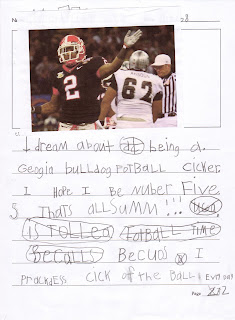 N
28
2
62
I dream about being a
Geogin bulldog FOTBALL cicker.
I HOPE I Be NuBer Five
5 THATS ALLSUMM !!!
IS TOLLEO FOTBALL TIME
BeCALLS BeCUDS I
PRackdess cick of the BALL! Evry day
Page 212